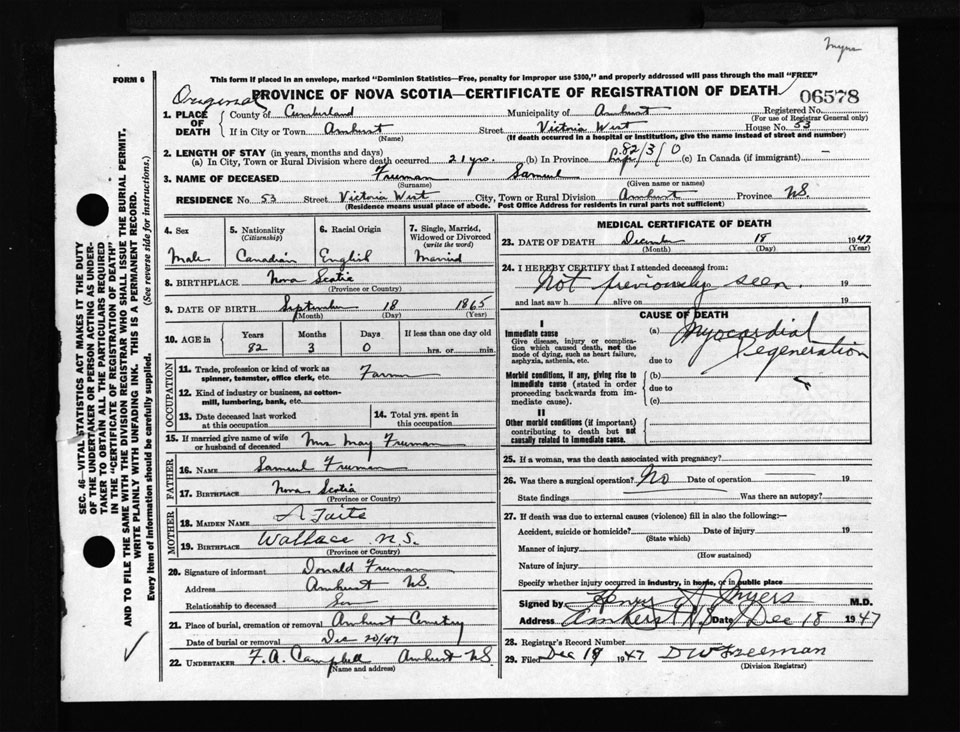 Myers
FORM 6
This form if placed in an envelope, marked "Dominion Statistics—Free, penalty for improper use $300," and properly addressed will pass through the mail "FREE"
Original
PROVINCE OF NOVA SCOTIA—CERTIFICATE OF REGISTRATION OF DEATH
06578
1. PLACE OF DEATH
County of Cumberland Municipality of Amherst Registered No.
(For use of Registrar General only)
If in City or Town Amherst Street Victoria West House No. 53
(Name) (If death occurred in a hospital or institution, give the name instead of street and number)
2. LENGTH OF STAY (in years, months and days)
(a) In City, Town or Rural Division where death occurred 21 yrs. (b) In Province 82/3/0 (c) In Canada (if immigrant) —
3. NAME OF DECEASED Freeman Samuel
(Surname) (Given name or names)
RESIDENCE No. 53 Street Victoria West City, Town or Rural Division Amherst Province NS.
(Residence means usual place of abode. Post Office Address for residents in rural parts not sufficient)
4. Sex 5. Nationality (Citizenship) 6. Racial Origin 7. Single, Married, Widowed or Divorced (write the word)
Male Canadian English Married
8. BIRTHPLACE Nova Scotia
(Province or Country)
9. DATE OF BIRTH September 18 1865
(Month) (Day) (Year)
10. AGE in Years Months Days If less than one day old
82 3 0 hrs. or min.
OCCUPATION
11. Trade, profession or kind of work as spinner, teamster, office clerk, etc. Farmer
12. Kind of industry or business, as cotton-mill, lumbering, bank, etc.
13. Date deceased last worked at this occupation
14. Total yrs. spent in this occupation
15. If married give name of wife or husband of deceased Mrs May Freeman
FATHER
16. NAME Samuel Freeman
17. BIRTHPLACE Nova Scotia
(Province or Country)
MOTHER
18. MAIDEN NAME A Taite
19. BIRTHPLACE Wallace N.S.
(Province or Country)
20. Signature of informant Donald Freeman
Address Amherst NS.
Relationship to deceased Son
21. Place of burial, cremation or removal Amherst Cemetery
Date of burial or removal Dec 20/47
22. UNDERTAKER F. A. Campbell Amherst NS.
(Name and address)
MEDICAL CERTIFICATE OF DEATH
23. DATE OF DEATH December 18 1947
(Month) (Day) (Year)
24. I HEREBY CERTIFY that I attended deceased from:
Not previously seen. 19
and last saw h alive on 19
CAUSE OF DEATH
I
Immediate cause
Give disease, injury or complication which caused death, not the mode of dying, such as heart failure, asphyxia, asthenia, etc.
(a) Myocardial Degeneration
due to
Morbid conditions, if any, giving rise to immediate cause (stated in order proceeding backwards from immediate cause).
(b)
due to
(c)
II
Other morbid conditions (if important) contributing to death but not causally related to immediate cause.
25. If a woman, was the death associated with pregnancy?
26. Was there a surgical operation? No Date of operation 19
State findings Was there an autopsy?
27. If death was due to external causes (violence) fill in also the following:
Accident, suicide or homicide? Date of injury 19
(State which)
Manner of injury
(How sustained)
Nature of injury
Specify whether injury occurred in industry, in home, or in public place
Signed by Henry A Myers M.D.
Address Amherst N.S Date Dec 18 1947
28. Registrar's Record Number
29. Filed Dec 19 1947 D W Freeman
(Division Registrar)
SEC. 46—VITAL STATISTICS ACT MAKES IT THE DUTY
OF THE UNDERTAKER OR PERSON ACTING AS UNDER-
TAKER TO OBTAIN ALL THE PARTICULARS REQUIRED
IN THE "CERTIFICATE OF REGISTRATION OF DEATH"
AND TO FILE THE SAME WITH THE DIVISION REGISTRAR WHO SHALL ISSUE THE BURIAL PERMIT.
WRITE PLAINLY WITH UNFADING INK. THIS IS A PERMANENT RECORD.
Every item of information should be carefully supplied. (See reverse side for instructions.)